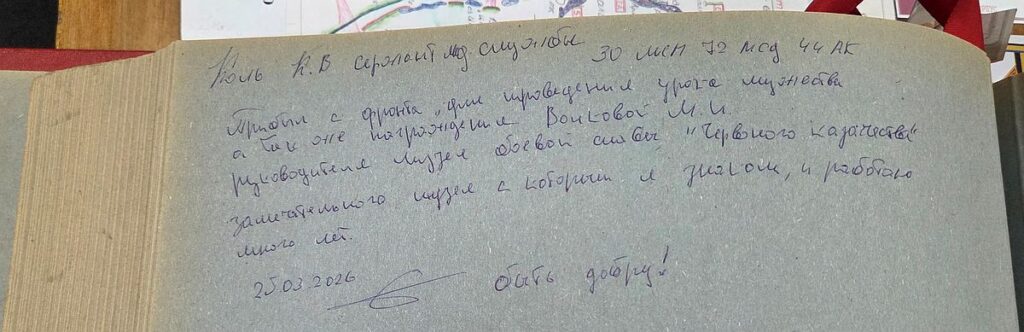 Коль К.В сержант мед службы 30 мсп 72 мсд 44 АК
Прибыл с фронта, для проведения урока мужества
а так же награждения Воиковой М.И.
руководителя Музея боевой славы "Червоного казачества"
замечательного музея с которым я знаком, и работаю
много лет.
25.03.2026 быть добру!